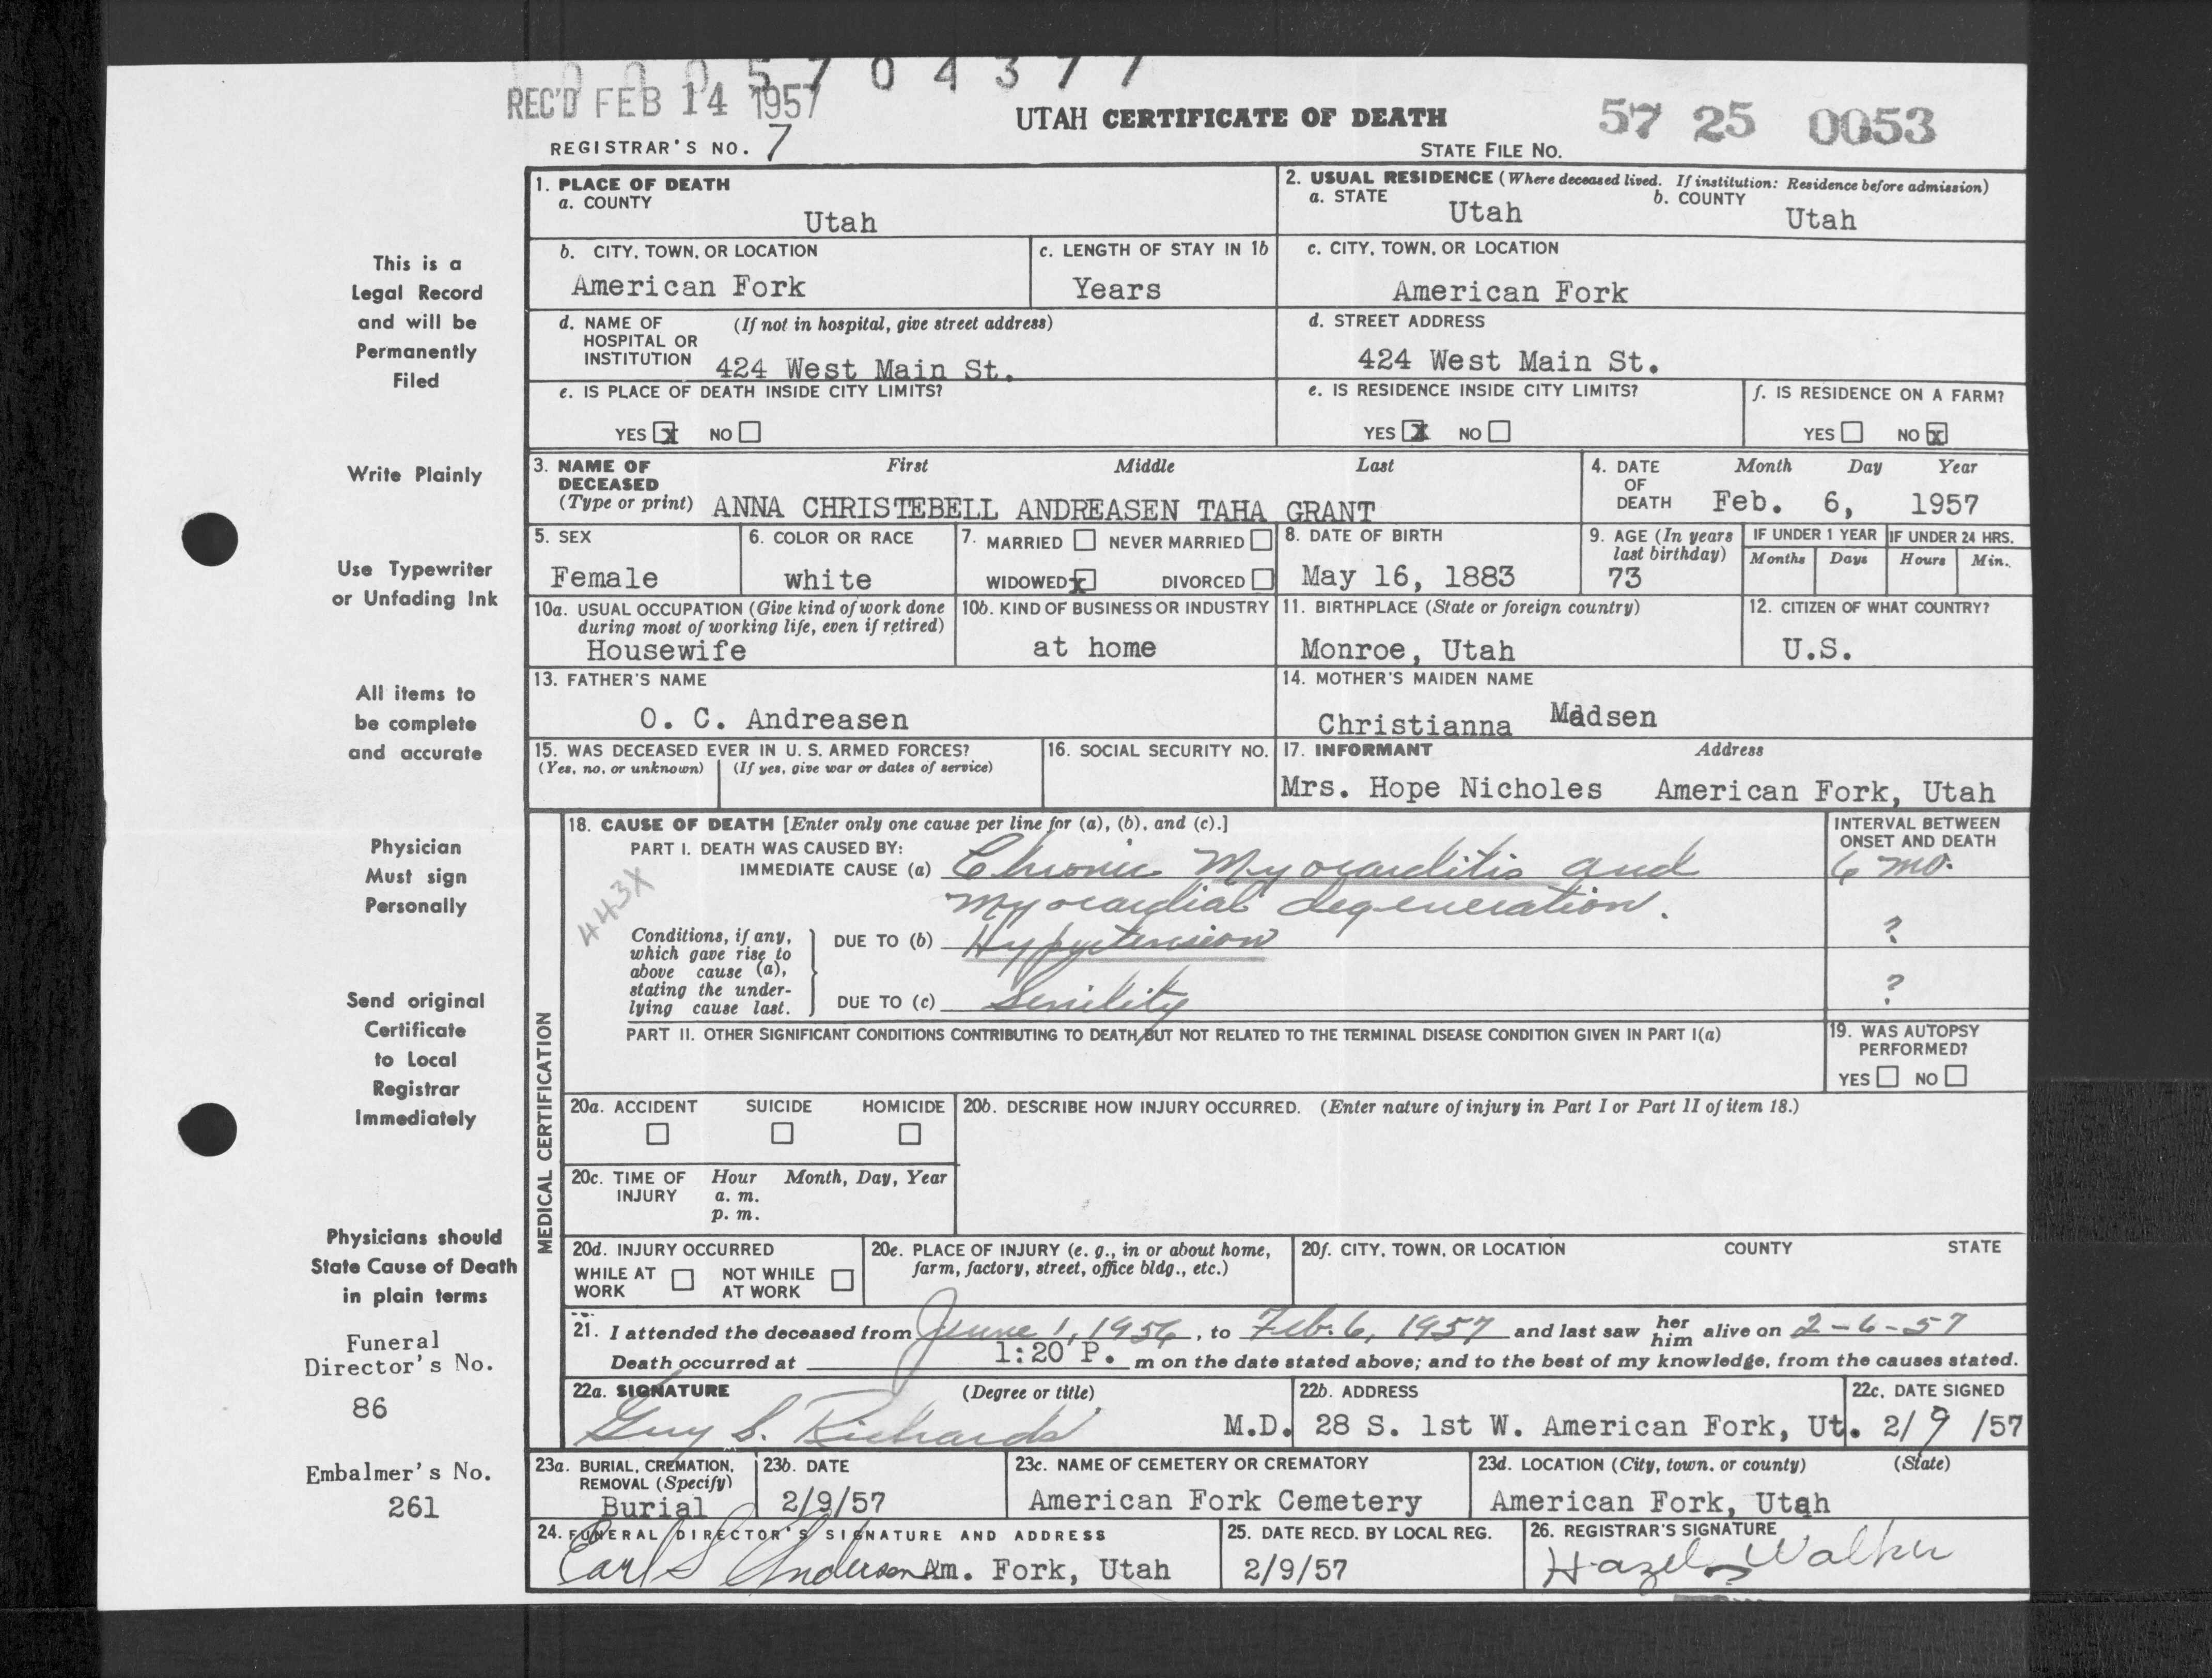 0 0 0 5 7 0 4 3 7 7
REC'D FEB 14 1957
UTAH CERTIFICATE OF DEATH
57 25 0053
REGISTRAR'S NO. 7
STATE FILE NO.
This is a
Legal Record
and will be
Permanently
Filed
Write Plainly
Use Typewriter
or Unfading Ink
All items to
be complete
and accurate
Physician
Must sign
Personally
Send original
Certificate
to Local
Registrar
Immediately
Physicians should
State Cause of Death
in plain terms
Funeral
Director's No.
86
Embalmer's No.
261
1. PLACE OF DEATH
a. COUNTY
Utah
2. USUAL RESIDENCE (Where deceased lived. If institution: Residence before admission)
a. STATE
Utah
b. COUNTY
Utah
b. CITY, TOWN, OR LOCATION
American Fork
c. LENGTH OF STAY IN 1b
Years
c. CITY, TOWN, OR LOCATION
American Fork
d. NAME OF (If not in hospital, give street address)
HOSPITAL OR
INSTITUTION 424 West Main St.
d. STREET ADDRESS
424 West Main St.
e. IS PLACE OF DEATH INSIDE CITY LIMITS?
YES X NO
e. IS RESIDENCE INSIDE CITY LIMITS?
YES X NO
f. IS RESIDENCE ON A FARM?
YES NO X
3. NAME OF First Middle Last
DECEASED
(Type or print) ANNA CHRISTEBELL ANDREASEN TAHA GRANT
4. DATE Month Day Year
OF
DEATH Feb. 6, 1957
5. SEX
Female
6. COLOR OR RACE
white
7. MARRIED NEVER MARRIED
WIDOWED X DIVORCED
8. DATE OF BIRTH
May 16, 1883
9. AGE (In years
last birthday)
73
IF UNDER 1 YEAR
Months Days
IF UNDER 24 HRS.
Hours Min.
10a. USUAL OCCUPATION (Give kind of work done
during most of working life, even if retired)
Housewife
10b. KIND OF BUSINESS OR INDUSTRY
at home
11. BIRTHPLACE (State or foreign country)
Monroe, Utah
12. CITIZEN OF WHAT COUNTRY?
U.S.
13. FATHER'S NAME
O. C. Andreasen
14. MOTHER'S MAIDEN NAME
Christianna Madsen
15. WAS DECEASED EVER IN U. S. ARMED FORCES?
(Yes, no, or unknown) (If yes, give war or dates of service)
16. SOCIAL SECURITY NO.
17. INFORMANT Address
Mrs. Hope Nicholes American Fork, Utah
MEDICAL CERTIFICATION
18. CAUSE OF DEATH [Enter only one cause per line for (a), (b), and (c).]
INTERVAL BETWEEN
ONSET AND DEATH
PART I. DEATH WAS CAUSED BY:
IMMEDIATE CAUSE (a) Chronic Myocarditis and 6 mo.
443X
myocardial degeneration.
Conditions, if any,
which gave rise to
above cause (a),
stating the under-
lying cause last.
DUE TO (b) Hypertension ?
DUE TO (c) Senility ?
PART II. OTHER SIGNIFICANT CONDITIONS CONTRIBUTING TO DEATH BUT NOT RELATED TO THE TERMINAL DISEASE CONDITION GIVEN IN PART I(a)
19. WAS AUTOPSY
PERFORMED?
YES NO
20a. ACCIDENT SUICIDE HOMICIDE
20b. DESCRIBE HOW INJURY OCCURRED. (Enter nature of injury in Part I or Part II of item 18.)
20c. TIME OF Hour Month, Day, Year
INJURY a. m.
p. m.
20d. INJURY OCCURRED
WHILE AT NOT WHILE
WORK AT WORK
20e. PLACE OF INJURY (e. g., in or about home,
farm, factory, street, office bldg., etc.)
20f. CITY, TOWN, OR LOCATION COUNTY STATE
21. I attended the deceased from June 1, 1956, to Feb. 6, 1957 and last saw her him alive on 2-6-57
Death occurred at 1:20 P. m on the date stated above; and to the best of my knowledge, from the causes stated.
22a. SIGNATURE (Degree or title)
Guy S. Richards M.D.
22b. ADDRESS
28 S. 1st W. American Fork, Ut.
22c. DATE SIGNED
2/9/57
23a. BURIAL, CREMATION,
REMOVAL (Specify)
Burial
23b. DATE
2/9/57
23c. NAME OF CEMETERY OR CREMATORY
American Fork Cemetery
23d. LOCATION (City, town, or county) (State)
American Fork, Utah
24. FUNERAL DIRECTOR'S SIGNATURE AND ADDRESS
Earl S Anderson Am. Fork, Utah
25. DATE RECD. BY LOCAL REG.
2/9/57
26. REGISTRAR'S SIGNATURE
Hazel Walker